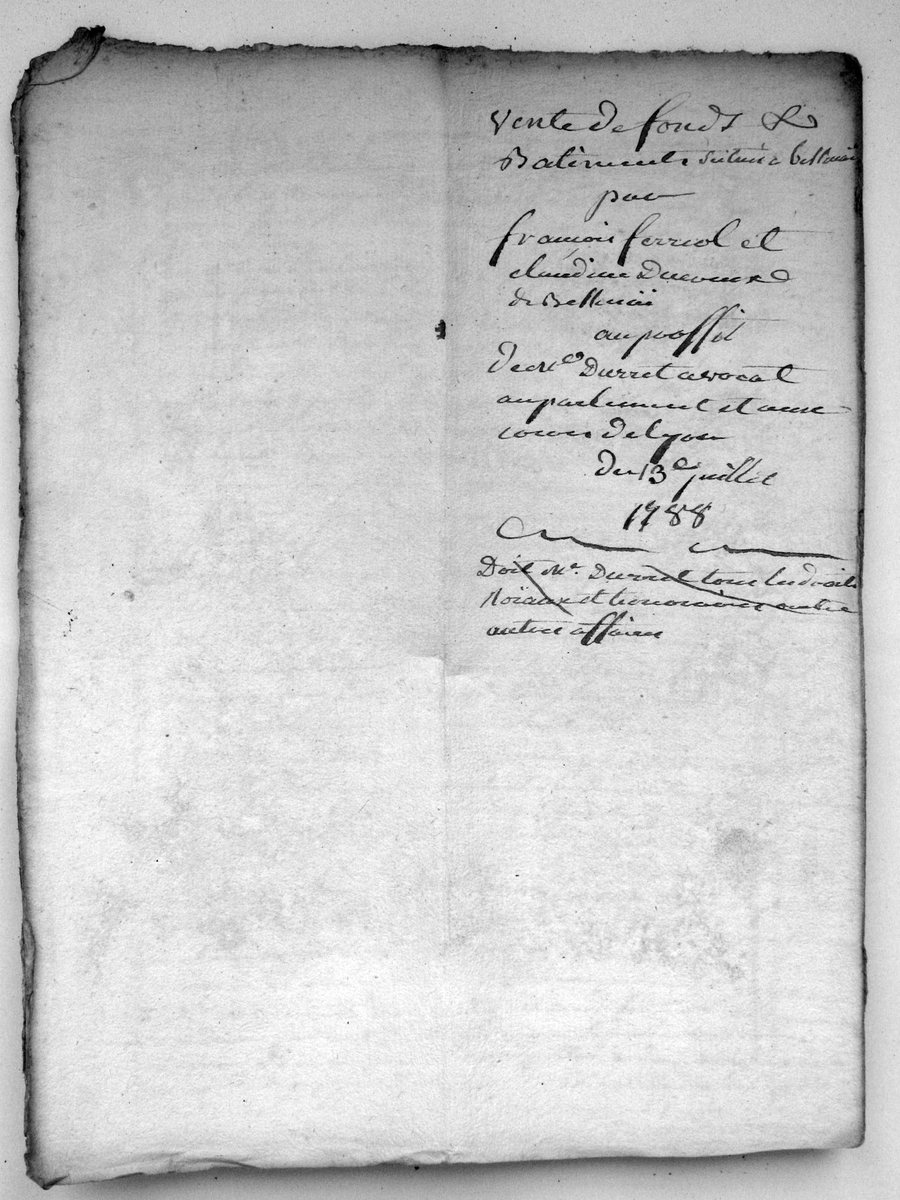 Vente de fonds &
Batiments scitués a bellmai
par
françois ferriol et
claudine Ducoux
de Bellmaÿ
au proffit
de Me. Durret avocat
au parlement et aux
cours de lyon
du 13e juillet
1788
Doit Mr. Durret tous les droits
Roïaux et honoraires outre
autres affaires